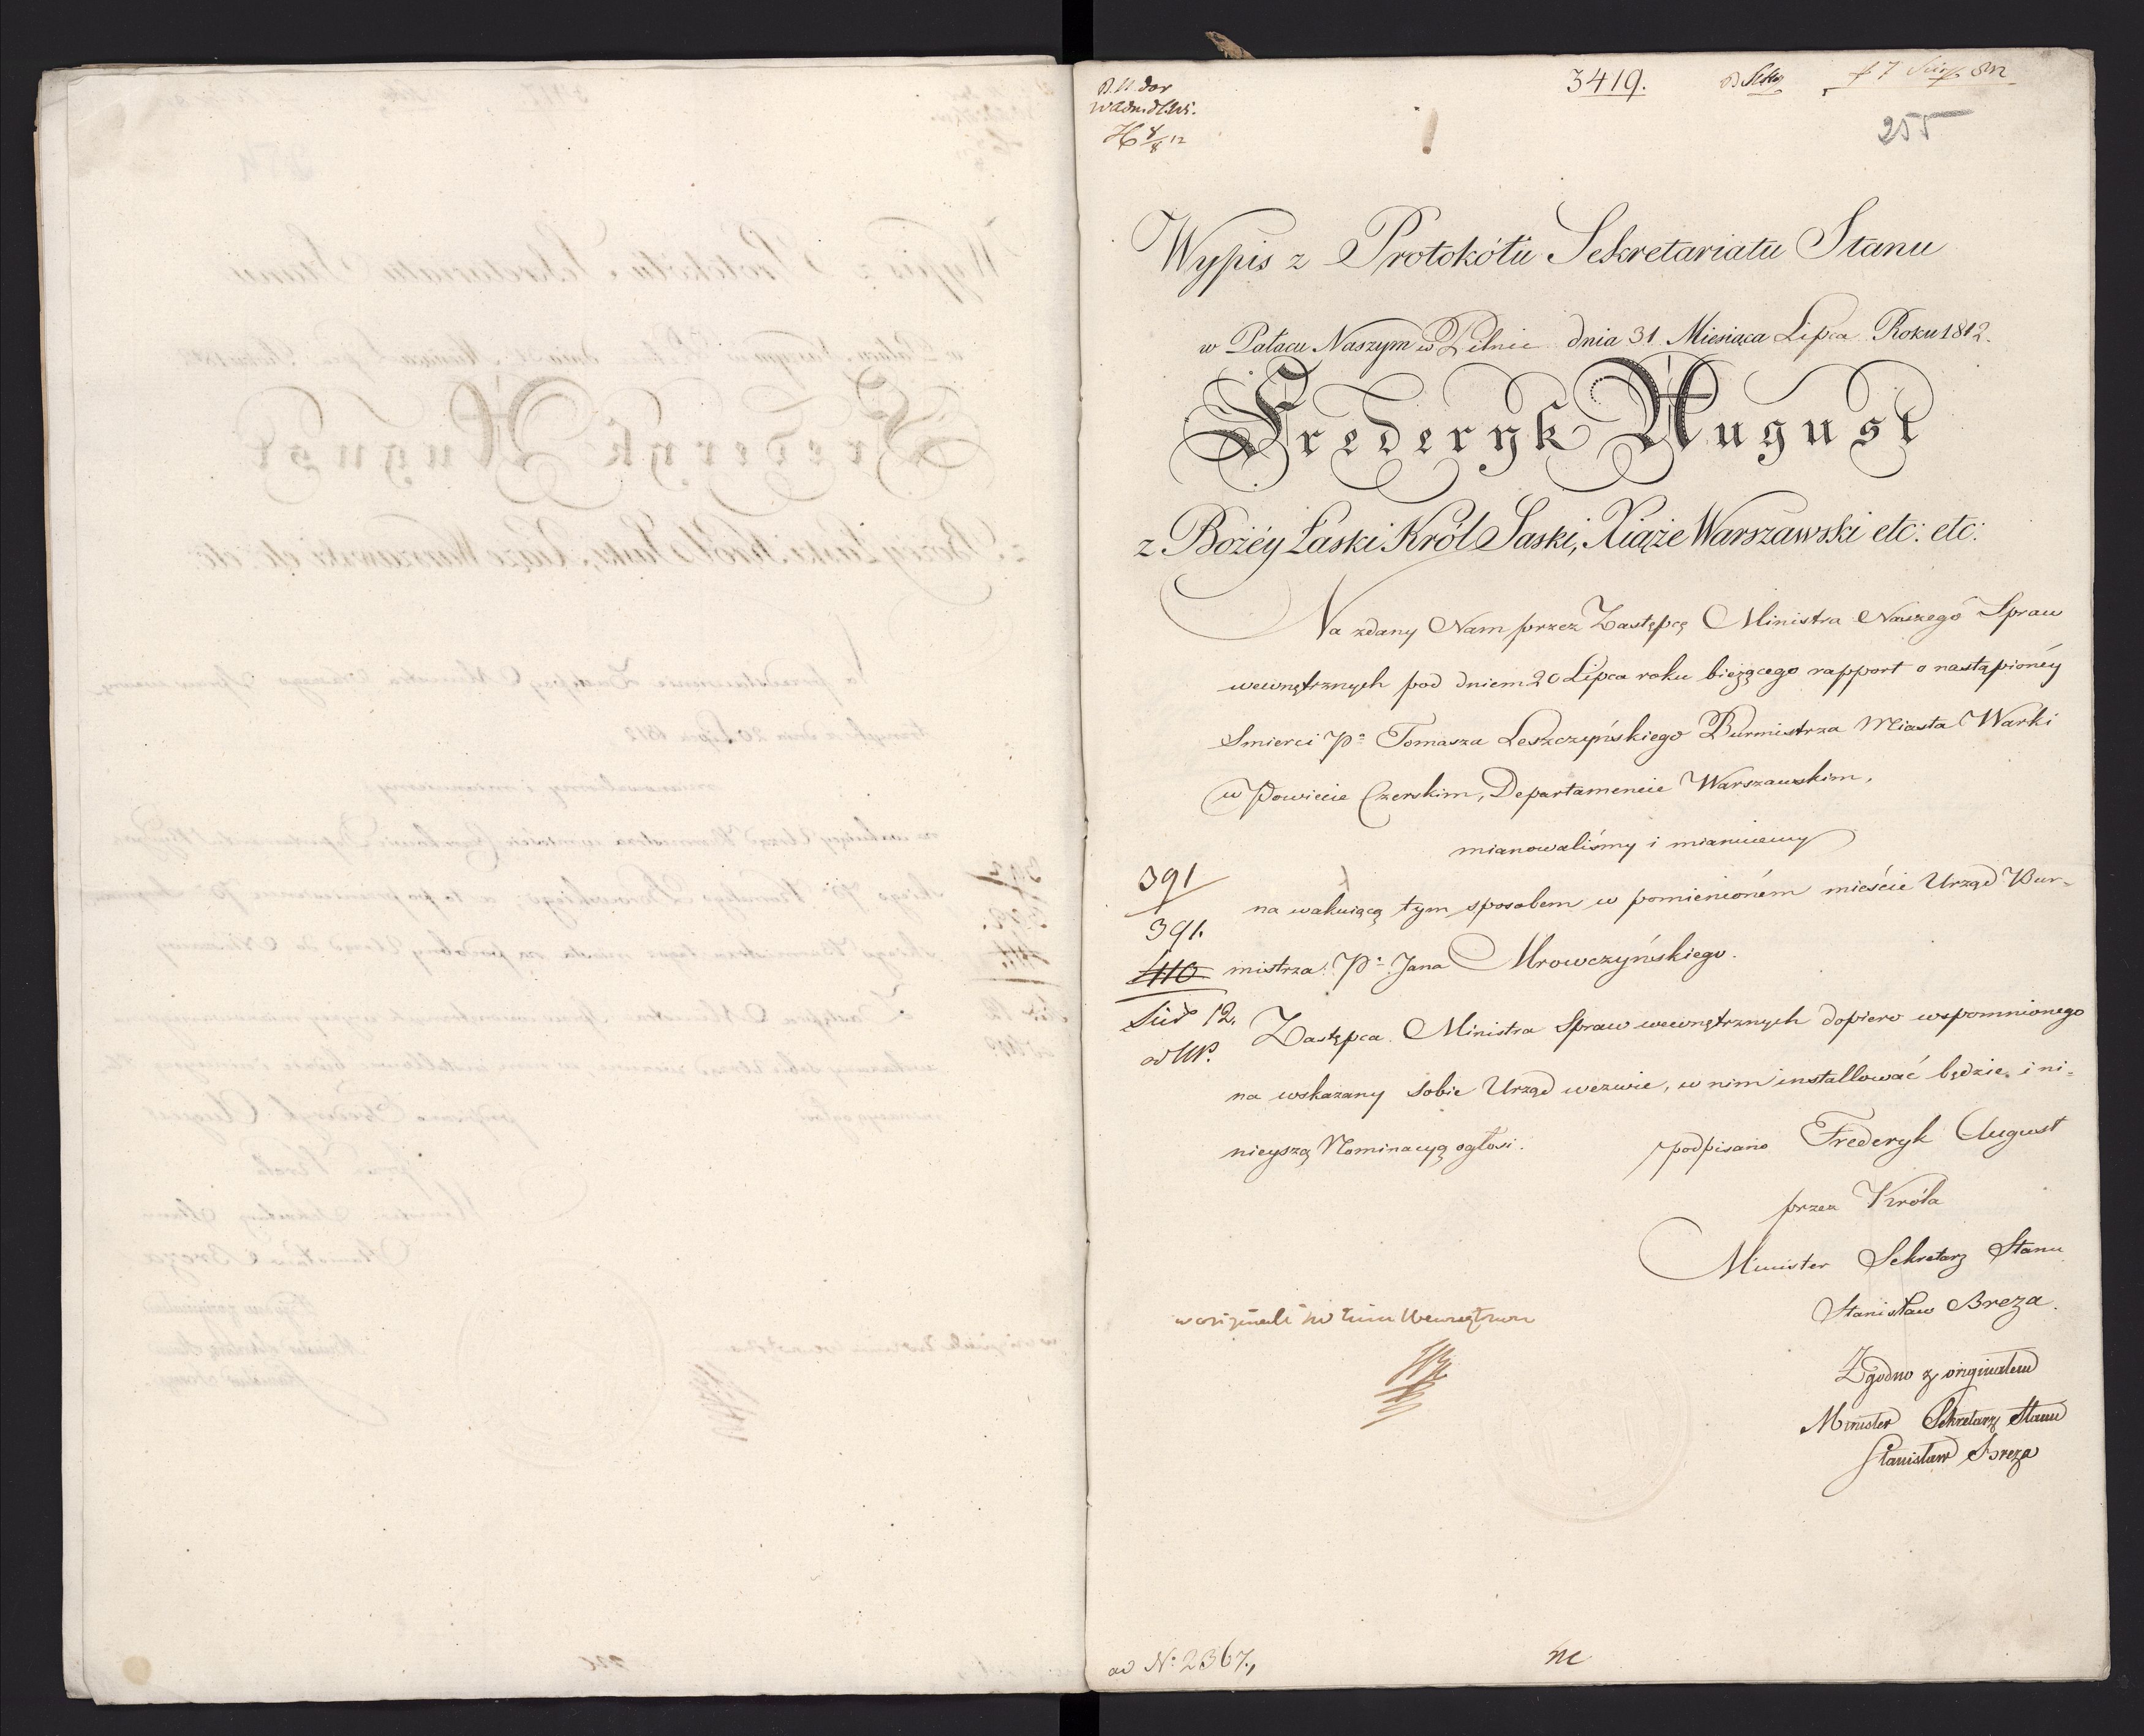 3419.
255
Wypis z Protokółu Sekretariatu Stanu
w Pałacu Naszym w Pilnic dnia 31 Miesiąca Lipca Roku 1812.
Frederyk August
z Bożéy Łaski Król Saski, Xiąże Warszawski etc: etc:
Na zdany Nam przez Zastępcę Ministra Naszego Spraw
wewnętrznych pod dniem 20 Lipca roku bieżącego rapport o nastąpionéy
Smierci Pa Tomasza Leszczyńskiego Burmistrza Miasta Warki
w Powiecie Czerskim, Departamencie Warszawskim,
mianowaliśmy i mianuiemy
391
na wakuiącą tym sposobem w pomienioném mieście Urząd Bur-
391.
110
mistrza Pa Jana Mrowczyńskiego.
12.
Zastępca Ministra Spraw wewnętrznych dopiero wspomnionego
na wskazany sobie Urząd wezwie, w nim installować będzie i ni-
nieyszą Nominacyą ogłosi.
podpisano Frederyk August
przez Króla
Minister Sekretarz Stanu
Stanisław Breza.
w originale
Zgodno z originałem
Minister Sekretarz Stanu
Stanisław Breza
ad No 2367.,